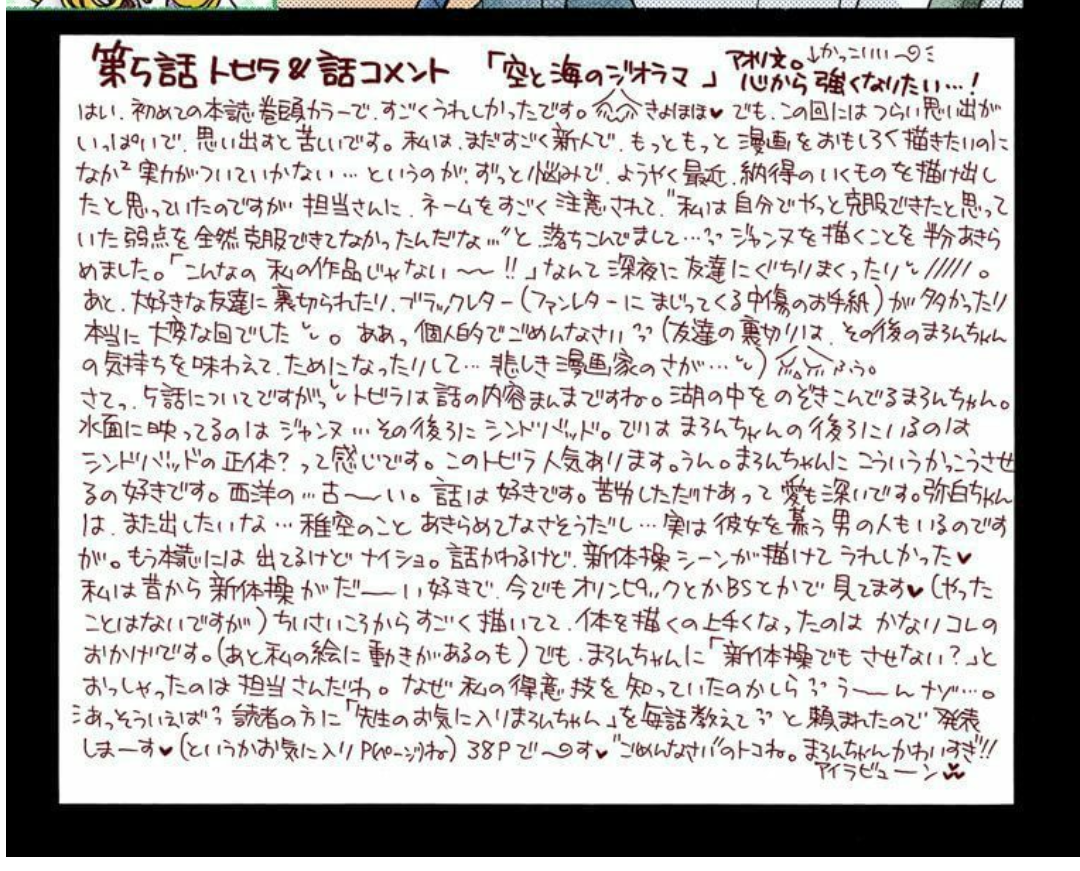 第5話 トビラ & 話コメント 「空と海のジオラマ」 アオリ文。↓かっこいいー
心から強くなりたい…!
はい、初めての本誌巻頭カラーで、すごくうれしかったです。きょほほ♥ でも、この回にはつらい思い出が
いっぱいで、思い出すと苦しいです。私は、まだすごく新人で、もっともっと漫画をおもしろく描きたいのに
なかなか実力がついていかない…というのが、ずっと悩みで、ようやく最近、納得のいくものを描け出し
たと思っていたのですが、担当さんに、ネームをすごく注意されて、"私は自分でやっと克服できたと思って
いた弱点を全然克服できてなかったんだな…"と、落ちこんでまして…?? ジャンヌを描くことを半分あきら
めました。「こんなの 私の作品じゃない〜〜!!」なんて深夜に友達にぐちりまくったり/////。
あと、大好きな友達に裏切られたり、ブラックレター(ファンレターにまじってくる中傷のお手紙)が多かったり
本当に大変な回でした。ああっ個人的でごめんなさい??(友達の裏切りは、その後のまろんちゃん
の気持ちを味わえて、ためになったりして…悲しき漫画家のさが…) ふう。
さてっ、5話についてですがっトビラは話の内容まんまですね。湖の中をのぞきこんでるまろんちゃん。
水面に映ってるのはジャンヌ…その後ろにシンドバッド。ではまろんちゃんの後ろにいるのは
シンドバッドの正体?って感じです。このトビラ人気あります。うん。まろんちゃんにこういうかっこうさせ
るの好きです。西洋の…古〜〜い。話は好きです。苦労しただけあって愛も深いです。弥白ちゃん
は、また出したいな…稚空のことあきらめてなさそうだし…実は彼女を慕う男の人もいるのです
が。もう本誌には出てるけどナイショ。話かわるけど、新体操シーンが描けてうれしかった♥
私は昔から新体操がだ〜〜い好きで、今でもオリンピックとかBSとかで見てます♥(やった
ことはないですが)ちいさいころからすごく描いてて、体を描くの上手くなったのはかなりコレの
おかげです。(あと私の絵に動きがあるのも)でも、まろんちゃんに「新体操でもさせない?」と
おっしゃったのは担当さんだわ。なぜ私の得意技を知っていたのかしら??う〜〜んナゾ…。
あっそういえば??読者の方に「先生のお気に入りまろんちゃん」を毎話教えて??と頼まれたので発表
しまーす♥(というかお気に入りP(ページ)ね)38Pで〜す♥"ごめんなさい"のトコね。まろんちゃんかわいすぎ!!
アイラビューン